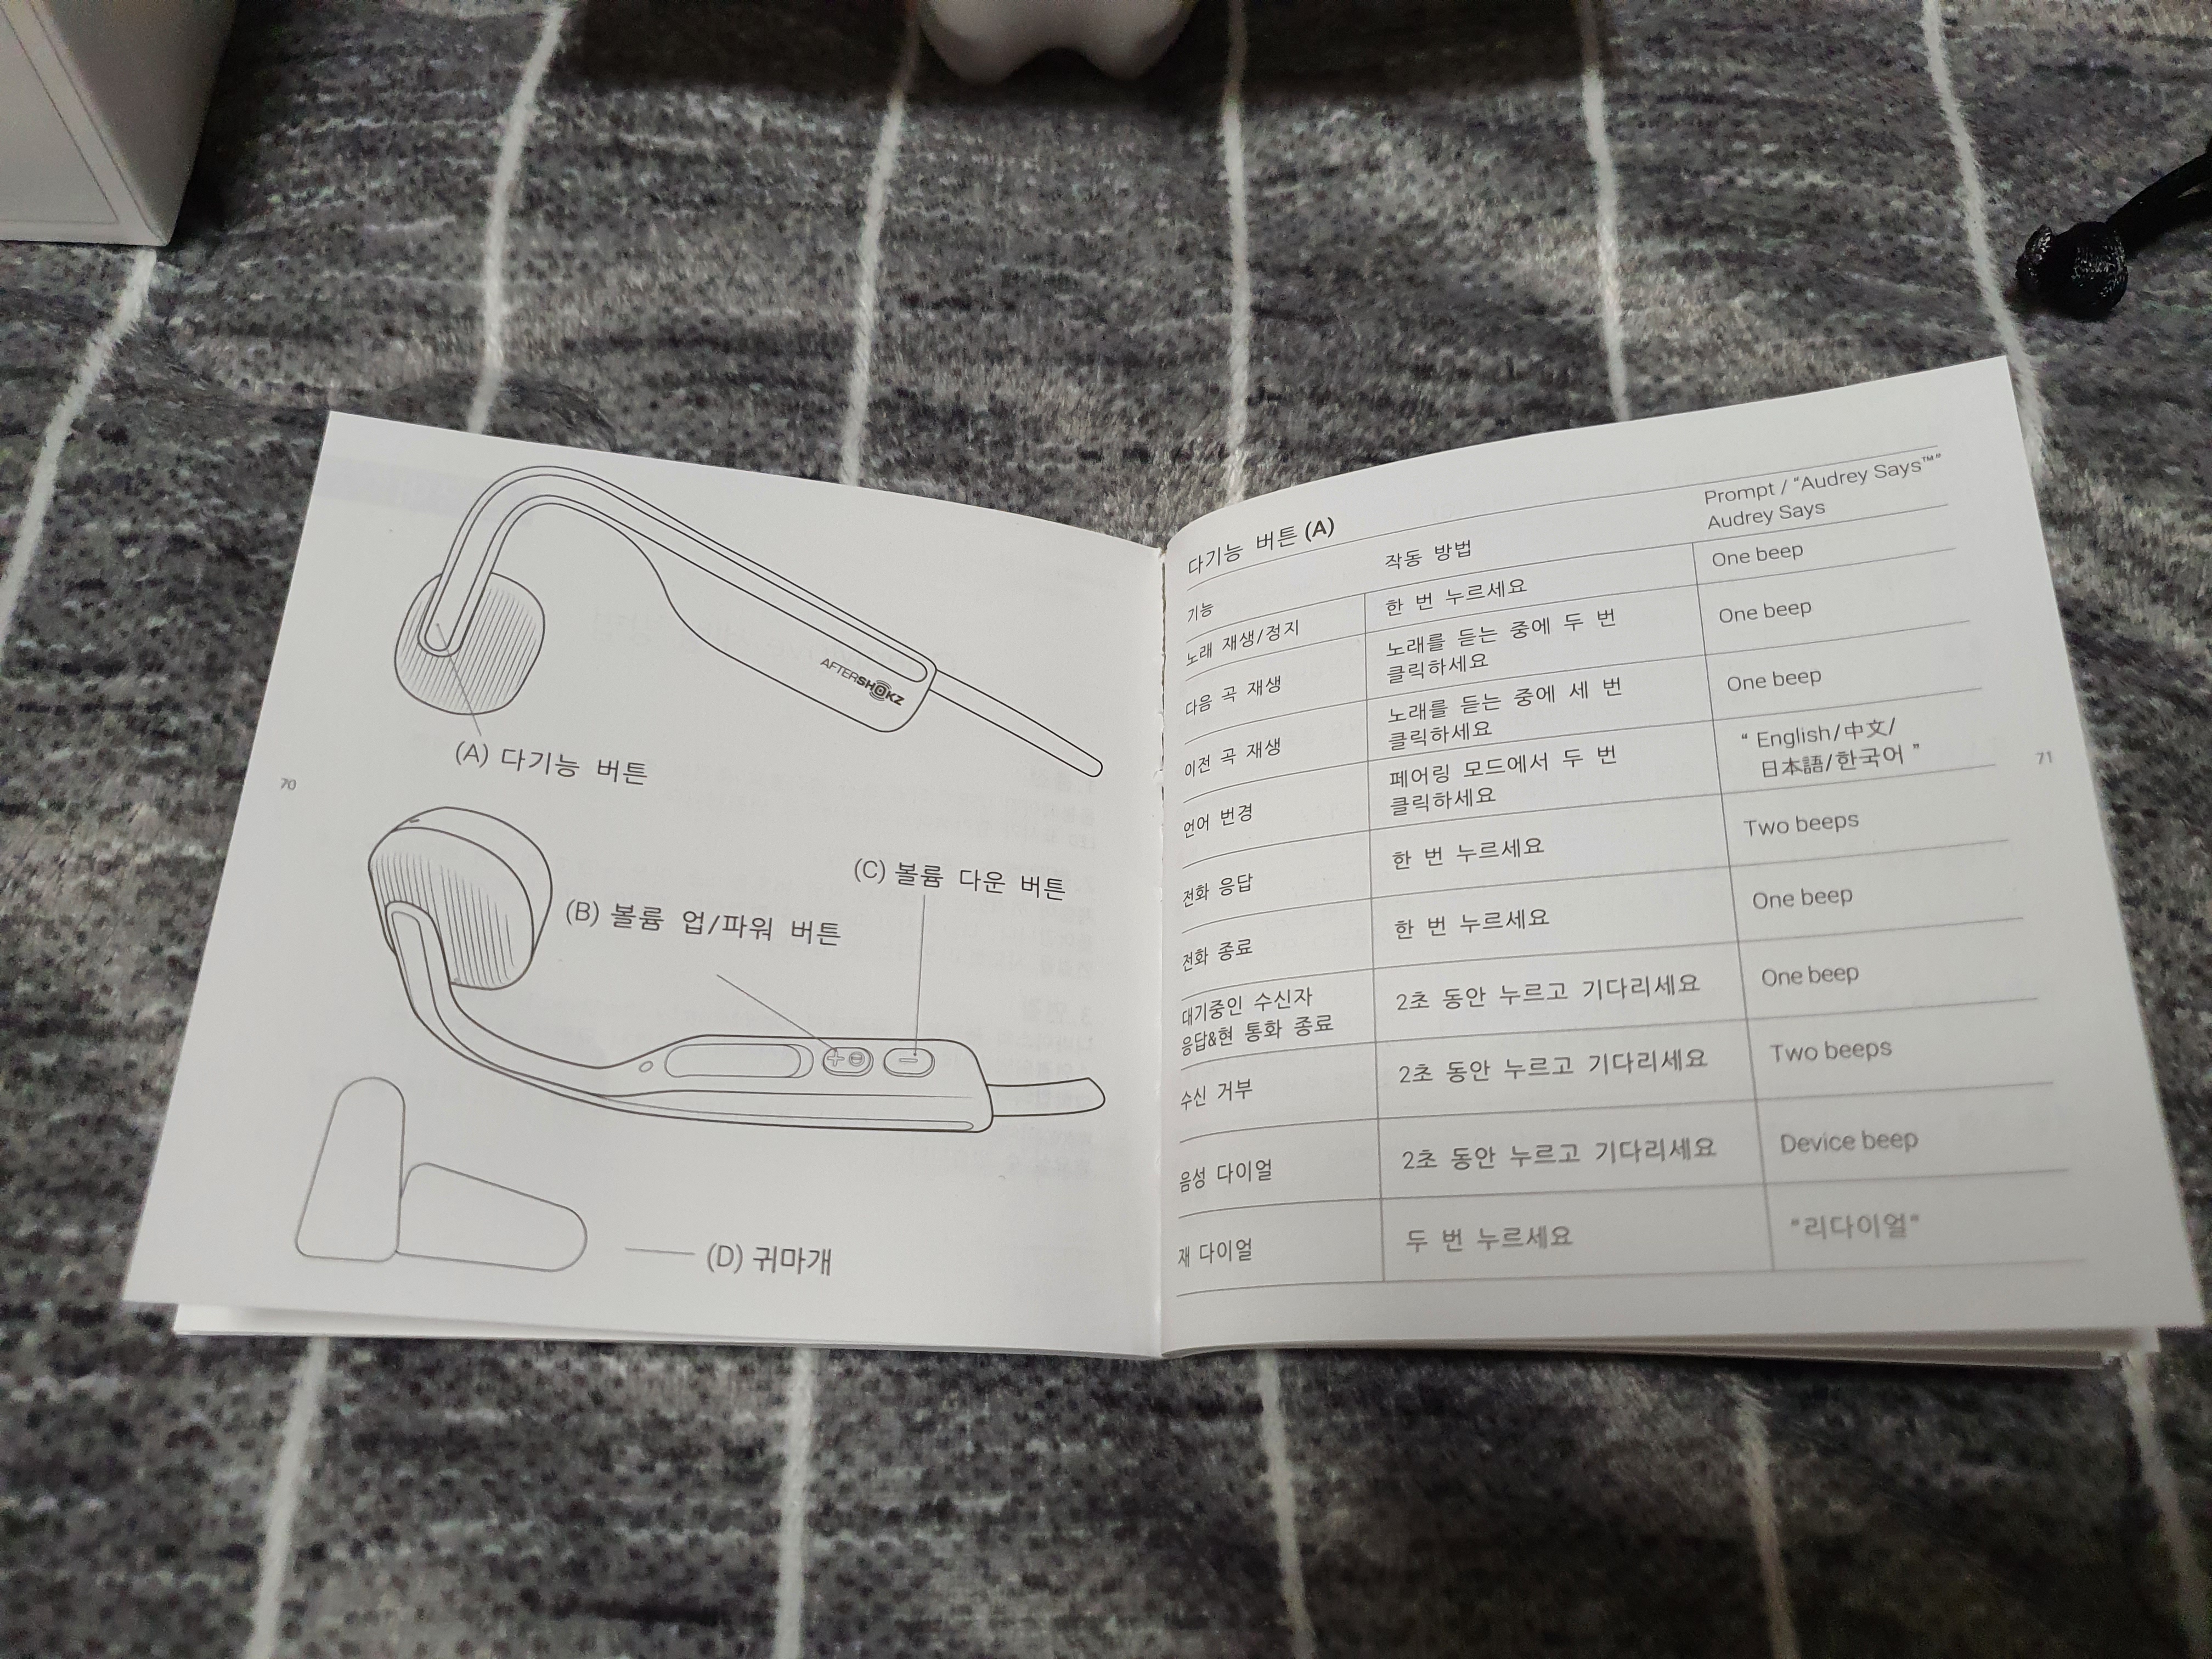 AFTERSHOKZ
(A) 다기능 버튼
70
(C) 볼륨 다운 버튼
(B) 볼륨 업/파워 버튼
(D) 귀마개
다기능 버튼 (A)
기능
작동 방법
Prompt / “Audrey Says™”
Audrey Says
노래 재생/정지
한 번 누르세요
One beep
다음 곡 재생
노래를 듣는 중에 두 번
클릭하세요
One beep
이전 곡 재생
노래를 듣는 중에 세 번
클릭하세요
One beep
언어 변경
페어링 모드에서 두 번
클릭하세요
“ English/中文/
日本語/한국어 ”
전화 응답
한 번 누르세요
Two beeps
전화 종료
한 번 누르세요
One beep
대기중인 수신자
응답&현 통화 종료
2초 동안 누르고 기다리세요
One beep
수신 거부
2초 동안 누르고 기다리세요
Two beeps
음성 다이얼
2초 동안 누르고 기다리세요
Device beep
재 다이얼
두 번 누르세요
“리다이얼”
71